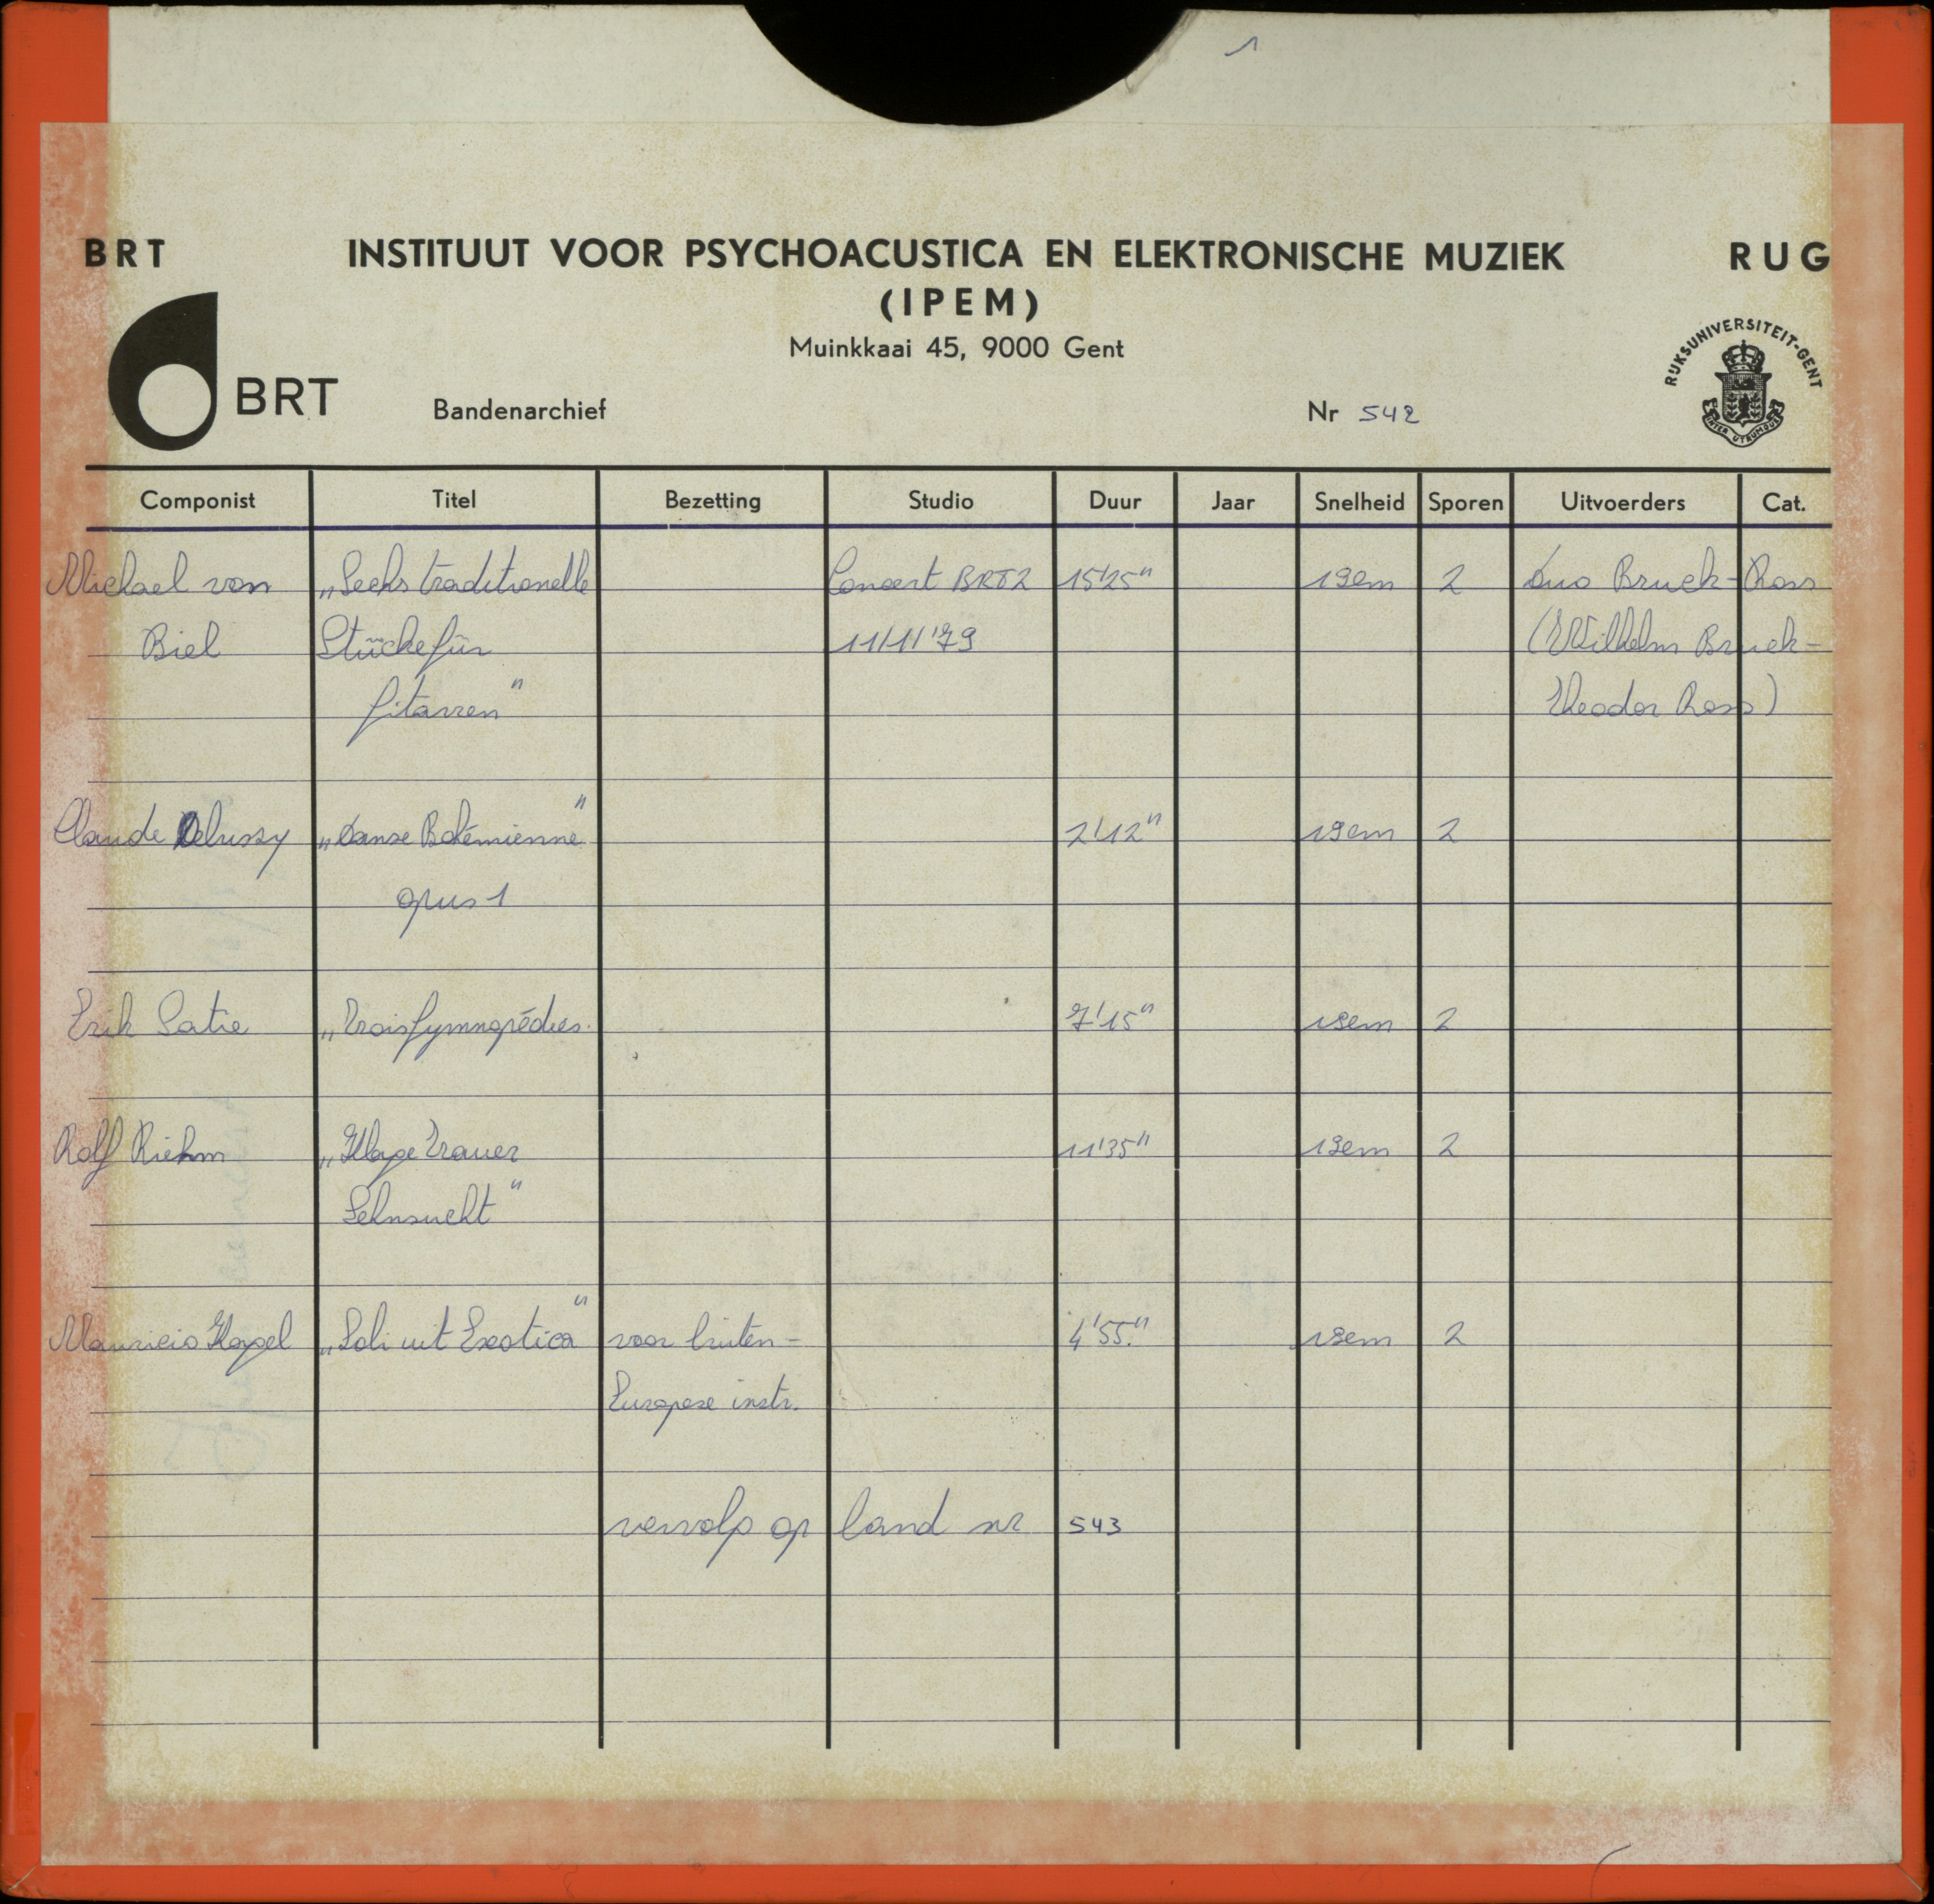 1
BRT INSTITUUT VOOR PSYCHOACUSTICA EN ELEKTRONISCHE MUZIEK RUG
(IPEM)
Muinkkaai 45, 9000 Gent
RIJKSUNIVERSITEIT-GENT
INTER UTRUMQUE
BRT Bandenarchief Nr 542
Componist Titel Bezetting Studio Duur Jaar Snelheid Sporen Uitvoerders Cat.
Michael von „Sechs traditionelle Concert BRT2 15'25" 19cm 2 Duo Bruck-Ross
Biel Stücke für 11/11/'79 (Wilhelm Bruck-
Gitarren" Theodor Ross)
Claude Debussy „Danse Bohémienne" 2'12" 19cm 2
opus 1
Erik Satie „Trois Gymnopédies. 7'15" 19cm 2
Rolf Riehm „Klage Trauer 11'35" 19cm 2
Sehnsucht"
Mauricio Kagel „Soli uit Exotica" voor buiten- 4'55." 19cm 2
Europese instr.
vervolg op band nr 543